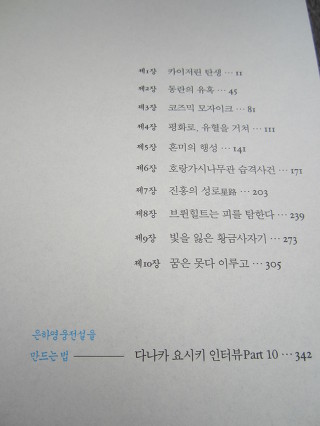 제1장 카이저린 탄생 … 11
제2장 동란의 유혹 … 45
제3장 코즈믹 모자이크 … 81
제4장 평화로, 유혈을 거쳐 … 111
제5장 혼미의 행성 … 141
제6장 호랑가시나무관 습격사건 … 171
제7장 진홍의 성로星路 … 203
제8장 브륀힐트는 피를 탐한다 … 239
제9장 빛을 잃은 황금사자기 … 273
제10장 꿈은 못다 이루고 … 305
은하영웅전설을
만드는 법 다나카 요시키 인터뷰 Part 10 … 342